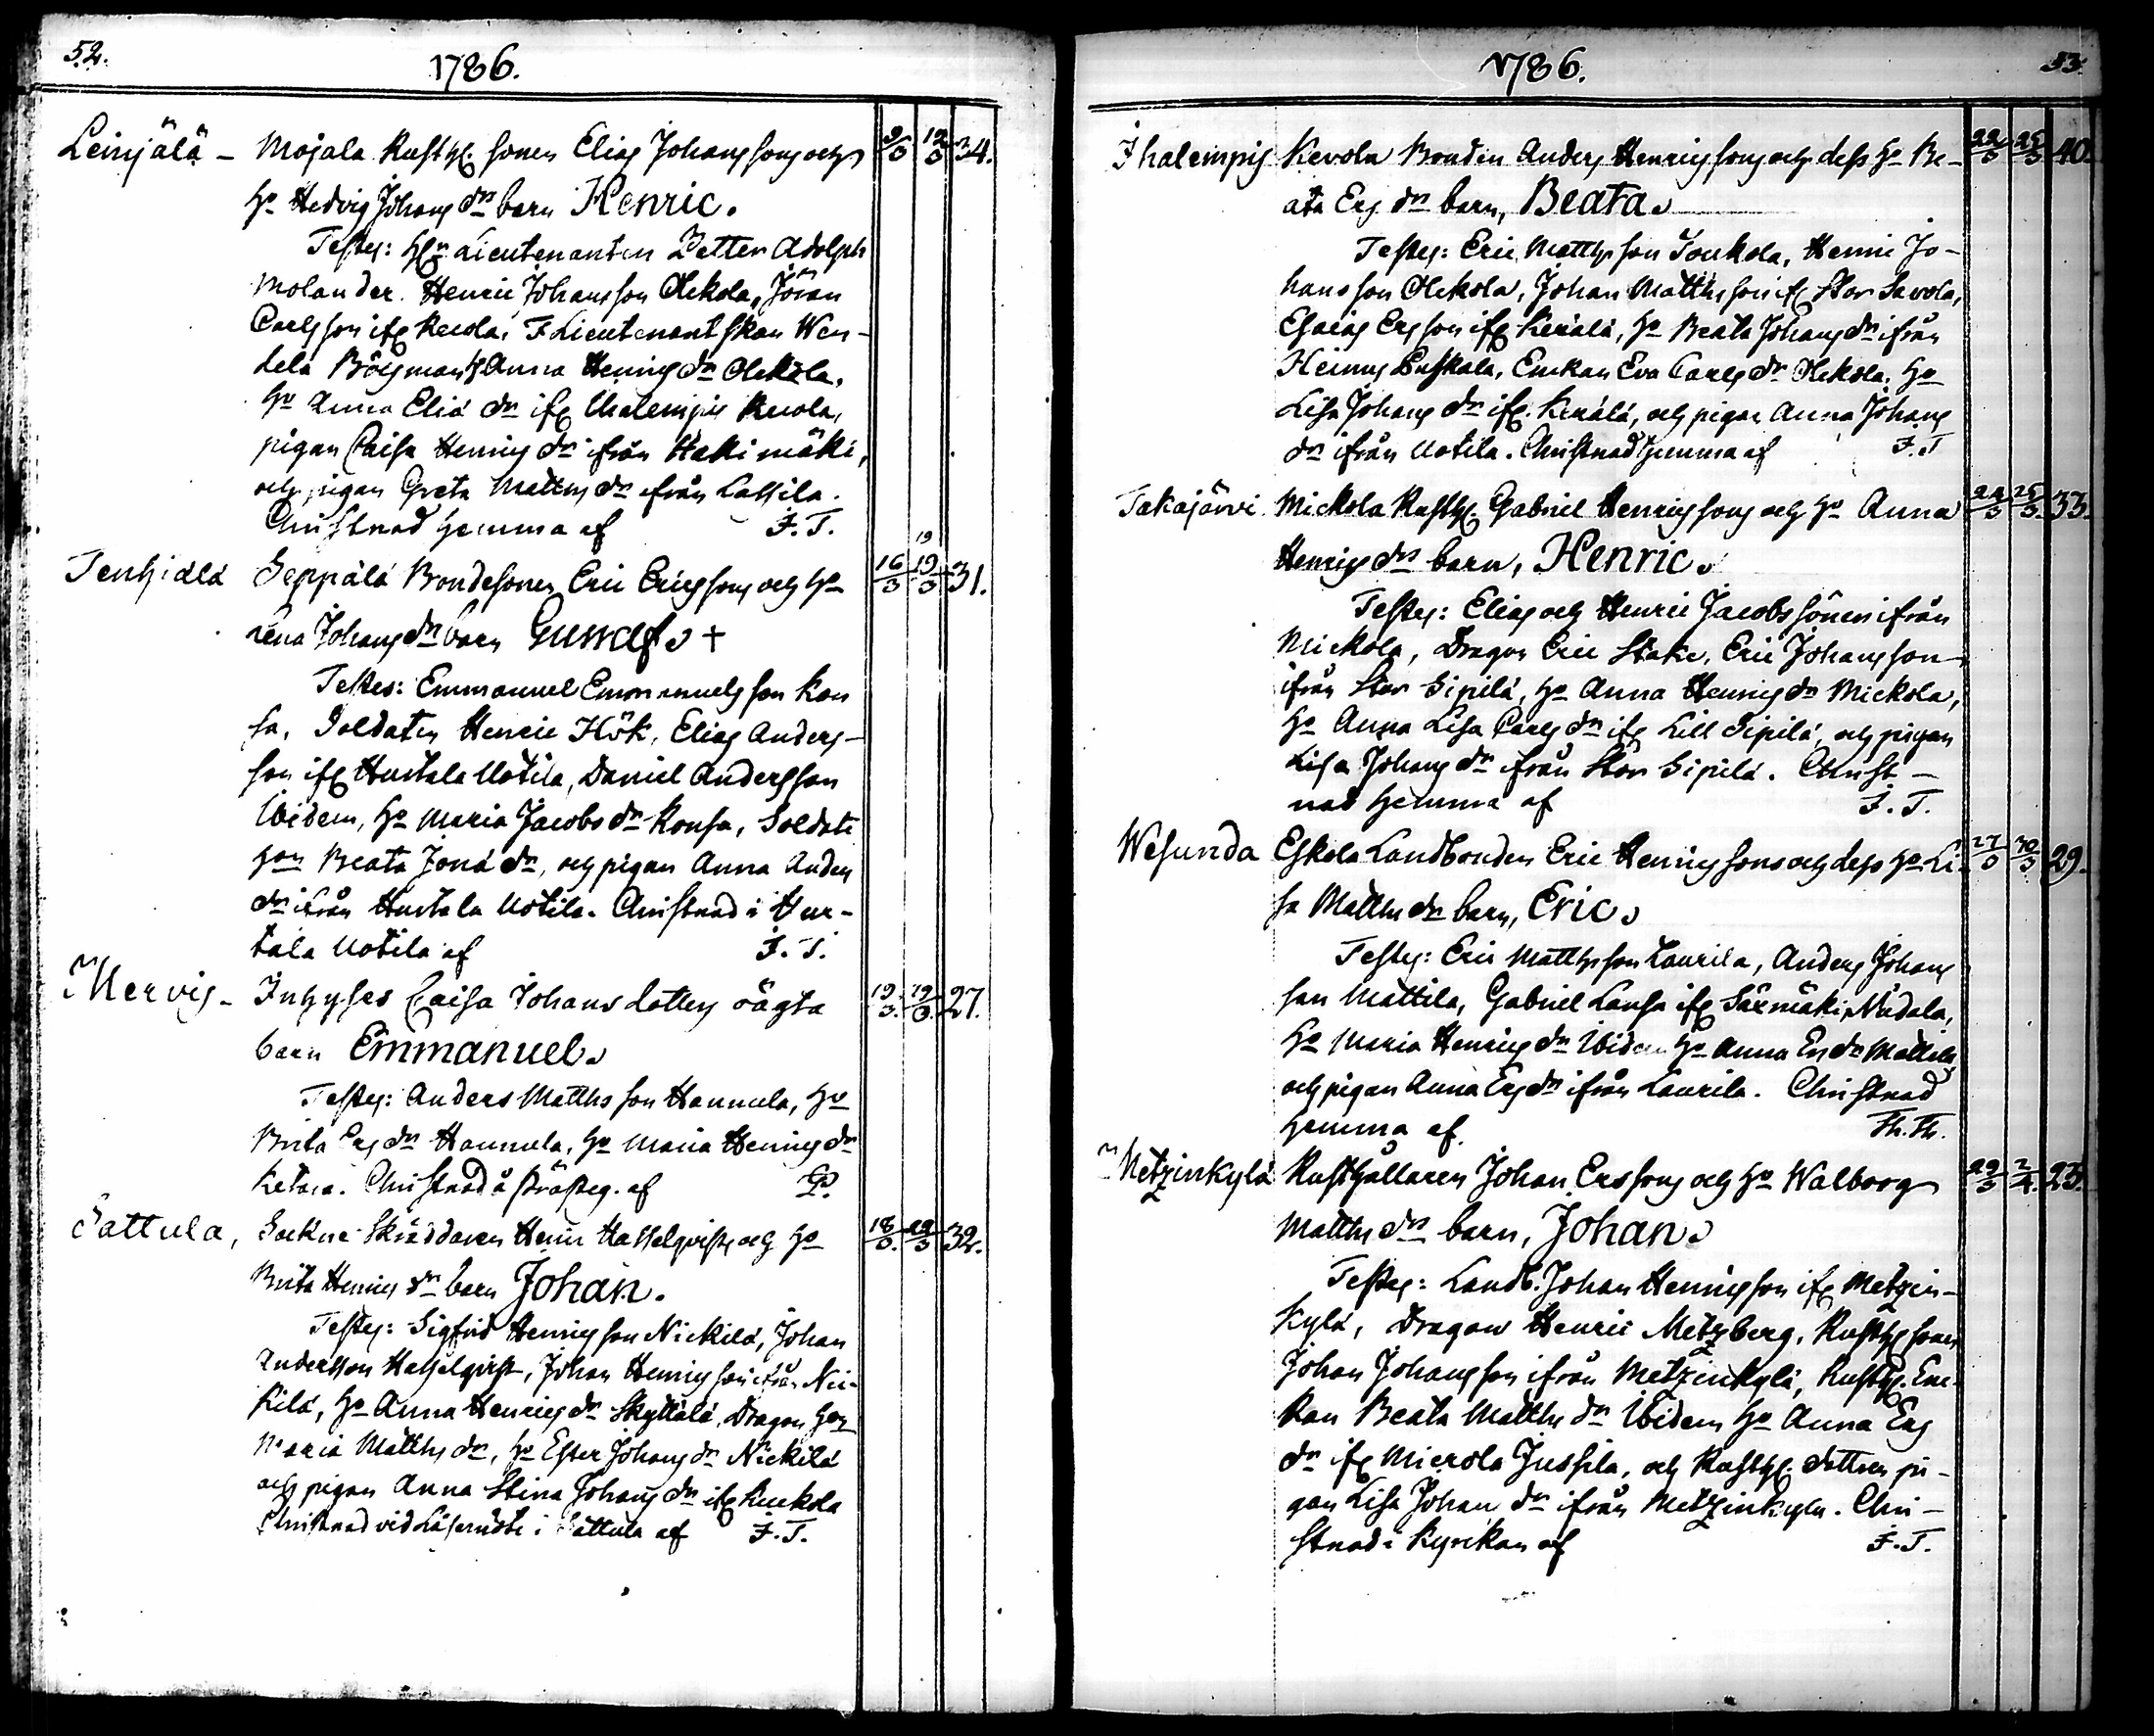 52.
1786.
Leinjälä - Mojala Rusth. sonen Elias Johanssons och 9/3 12/3 34.
h. Hedvig Johans dr barn Henric.
Testes: H. Lieutenanten Petter Adolph
Molander. Henric Johansson Olekola, Jöran
Carlsson ifr. Kevola, F Lieutenantskan Wen-
dela Anna Henrics dr Olekola,
h. Anna Elia dr ifr. Ihalempis Kevola,
pigan Caisa Henrics dr ifrån Hakimäki,
och pigan Greta Matths dr ifrån Lassila.
Christnad hemma af F. T.
19
Tenhiälä Seppälä Bondesonen Eric Ericssons och h. 16/3 19/3 31.
Lena Johans dr barn Gustaf. +
Testes: Emmanuel Emmanuelsson Kon
sa, Soldaten Henric Hök, Elias Anders-
son ifr. Hurtala Uotila, Daniel Andersson
Ibidem, h. Maria Jacobs dr Konsa, Soldats
h. Beata Jona dr, och pigan Anna Anders
dr ifrån Hurtala Uotila. Christnad i Hur-
tala Uotila af F. T.
Mervis - Inhyses Caisa Johans dotters oägta 19/3. 19/3. 27.
barn Emmanuel.
Testes: Anders Matthsson Hannula, h.
Brita Ers dr Hannula, h. Maria Henrics dr
Ketara. Christnad å prästeg. af
Sattula, Sockne Skräddaren Henric Hasselqvists och h. 18/3. 22/3 32.
Brita Henrics dr barn Johan.
Testes: Sigfrid Henricsson Nickilä, Johan
Andersson Hasselqvist, Johan Henricsson ifrån Nic-
kilä, h. Anna Henrics dr Skyttälä, Dragon h.
Maria Matths dr, h. Ester Johans dr Nickilä
och pigan Anna Stina Johans dr ifr. Kuckola
Christnad vid Läsemöte i Sattula af F. T.
1786.
53.
Ihalempis Kevola Bonden Anders Henricssons och dess h. Be- 22/3 25/3 40.
ata Ers dr barn, Beata.
Testes: Eric Matthsson Joukola, Henric Jo-
hansson Olekola, Johan Matthsson ifr. Stor Savola,
Esaias Ersson ifr. Kerälä, h. Beata Johans dr ifrån
Heinus Puskala, Enckan Eva Carls dr Olekola, h.
Lisa Johans dr ifr. Kerälä, och pigan Anna Johans
dr ifrån Uotila. Christnad hemma af F. T
Takajärvi Mickola Rusth. Gabriel Henricssons och h. Anna 22/3 25/3. 33.
Henrics drs barn, Henric.
Testes: Elias och Henric Jacobs sönen ifrån
Mickola, Dragon Eric Stake, Eric Johansson
ifrån Stor Sipilä, h. Anna Henrics dr Mickola,
h. Anna Lisa Carls dr ifr. Lill Sipilä, och pigan
Lisa Johans dr ifrån Stor Sipilä. Christ-
nad hemma af F. T.
Wesunda Eskola Landbonden Eric Henricssons och dess h. Li- 27/3 30/3 29.
sa Matths dr barn, Eric.
Testes: Eric Matthsson Laurila, Anders Johans
son Mattila, Gabriel Lausa ifr. Särmäki,
h. Maria Henrics dr Ibidem h. Anna Ers dr Mattila
och pigan Anna Ers dr ifrån Laurila. Christnad
hemma af. Th. Th.
Metzinkylä Rusthållaren Johan Erssons och h. Walborg 29/3 2/4. 23.
Matths drs barn, Johan.
Testes: Landb. Johan Henricsson ifr. Metzin-
kylä, Dragon Henric Metzberg, Rusth. sonen
Johan Johansson ifrån Metzinkylä, Rusth. Enc-
kan Beata Matths dr Ibidem h. Anna Ers
dr ifr. Mierola Jussila, och Rusth. dottren pi-
gan Lisa Johans dr ifrån Metzinkylä. Chri-
stnad i Kyrikan af F. T.